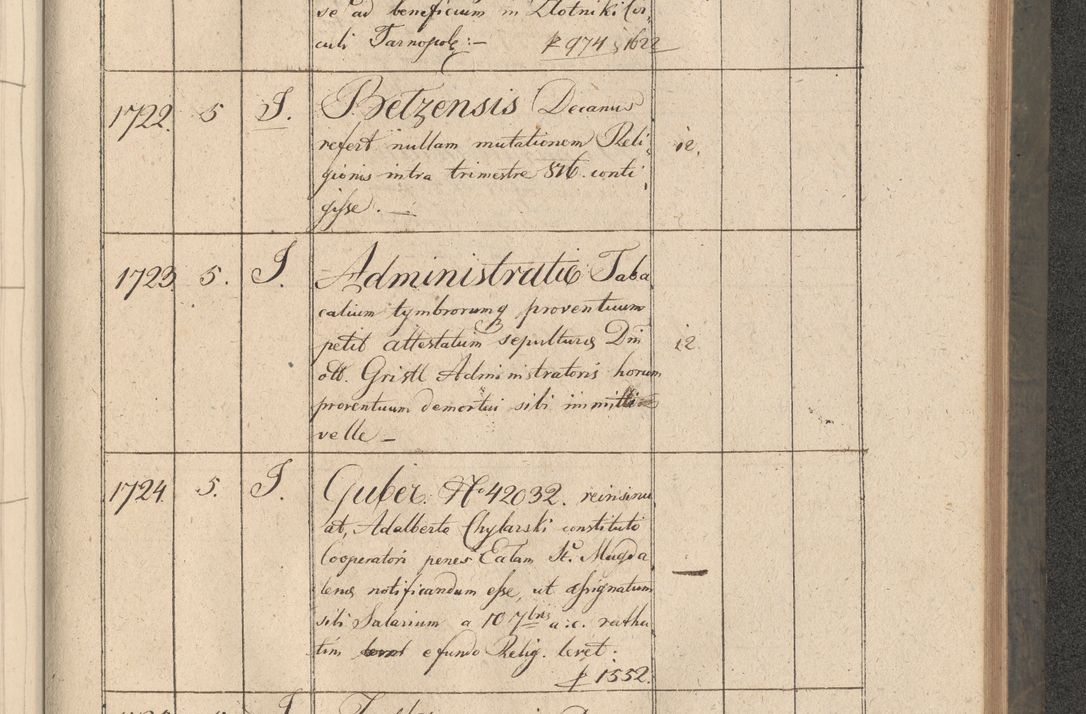 se ad beneficium in Zlotniki Cir,
culi Tarnopole :— p 974 ; 1622
1722. 5 J. Betzensis Decanus
refert nullam mutationem Reli;
gionis intra trimestre 8X6. conti; 12.
gisse . —
1723 5. J. Administratio Taba
calium tymbrorumq proventuum
petit attestatum sepultura Dni 12
ott. Gristl Administratoris horum
proventuum demortui sibi immitti
velle —
1724. 5. J. Guber. No 42032. reinsinu
at, Adalberto Chylarski constituto
Cooperatori penes Ealam St. Magda
lena notificandum esse, ut assignatum —
sibi Salarium a 10 7bris a: c. ratha
tim e fundo Relig. levet.
p 1552.